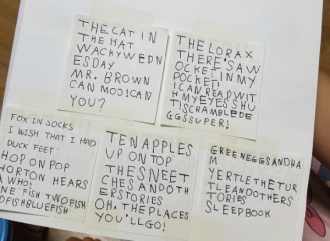 THE CAT IN
THE HAT
WACKY WEDN
ESDAY
MR. BROWN
CAN MOO! CAN
YOU?
THE LORAX
THERE'S A W
OCKET IN MY
POCKET!
I CAN READ WIT
H MY EYES SHU
T! SCRAMBLED E
GGS SUPER!
FOX IN SOCKS
I WISH THAT I HAD
DUCK FEET
HOP ON POP
HORTON HEARS
A WHO!
ONE FISH TWO FISH
REDFISHBLUEFISH
TEN APPLES
UP ON TOP
THE SNEET
CHES AND OTH
ER STORIES
OH, THE PLACES
YOU'LL GO!
GREEN EGGS AND HA
M
YERTLE THE TUR
TLE AND OTHER S
TORIES
SLEEP BOOK